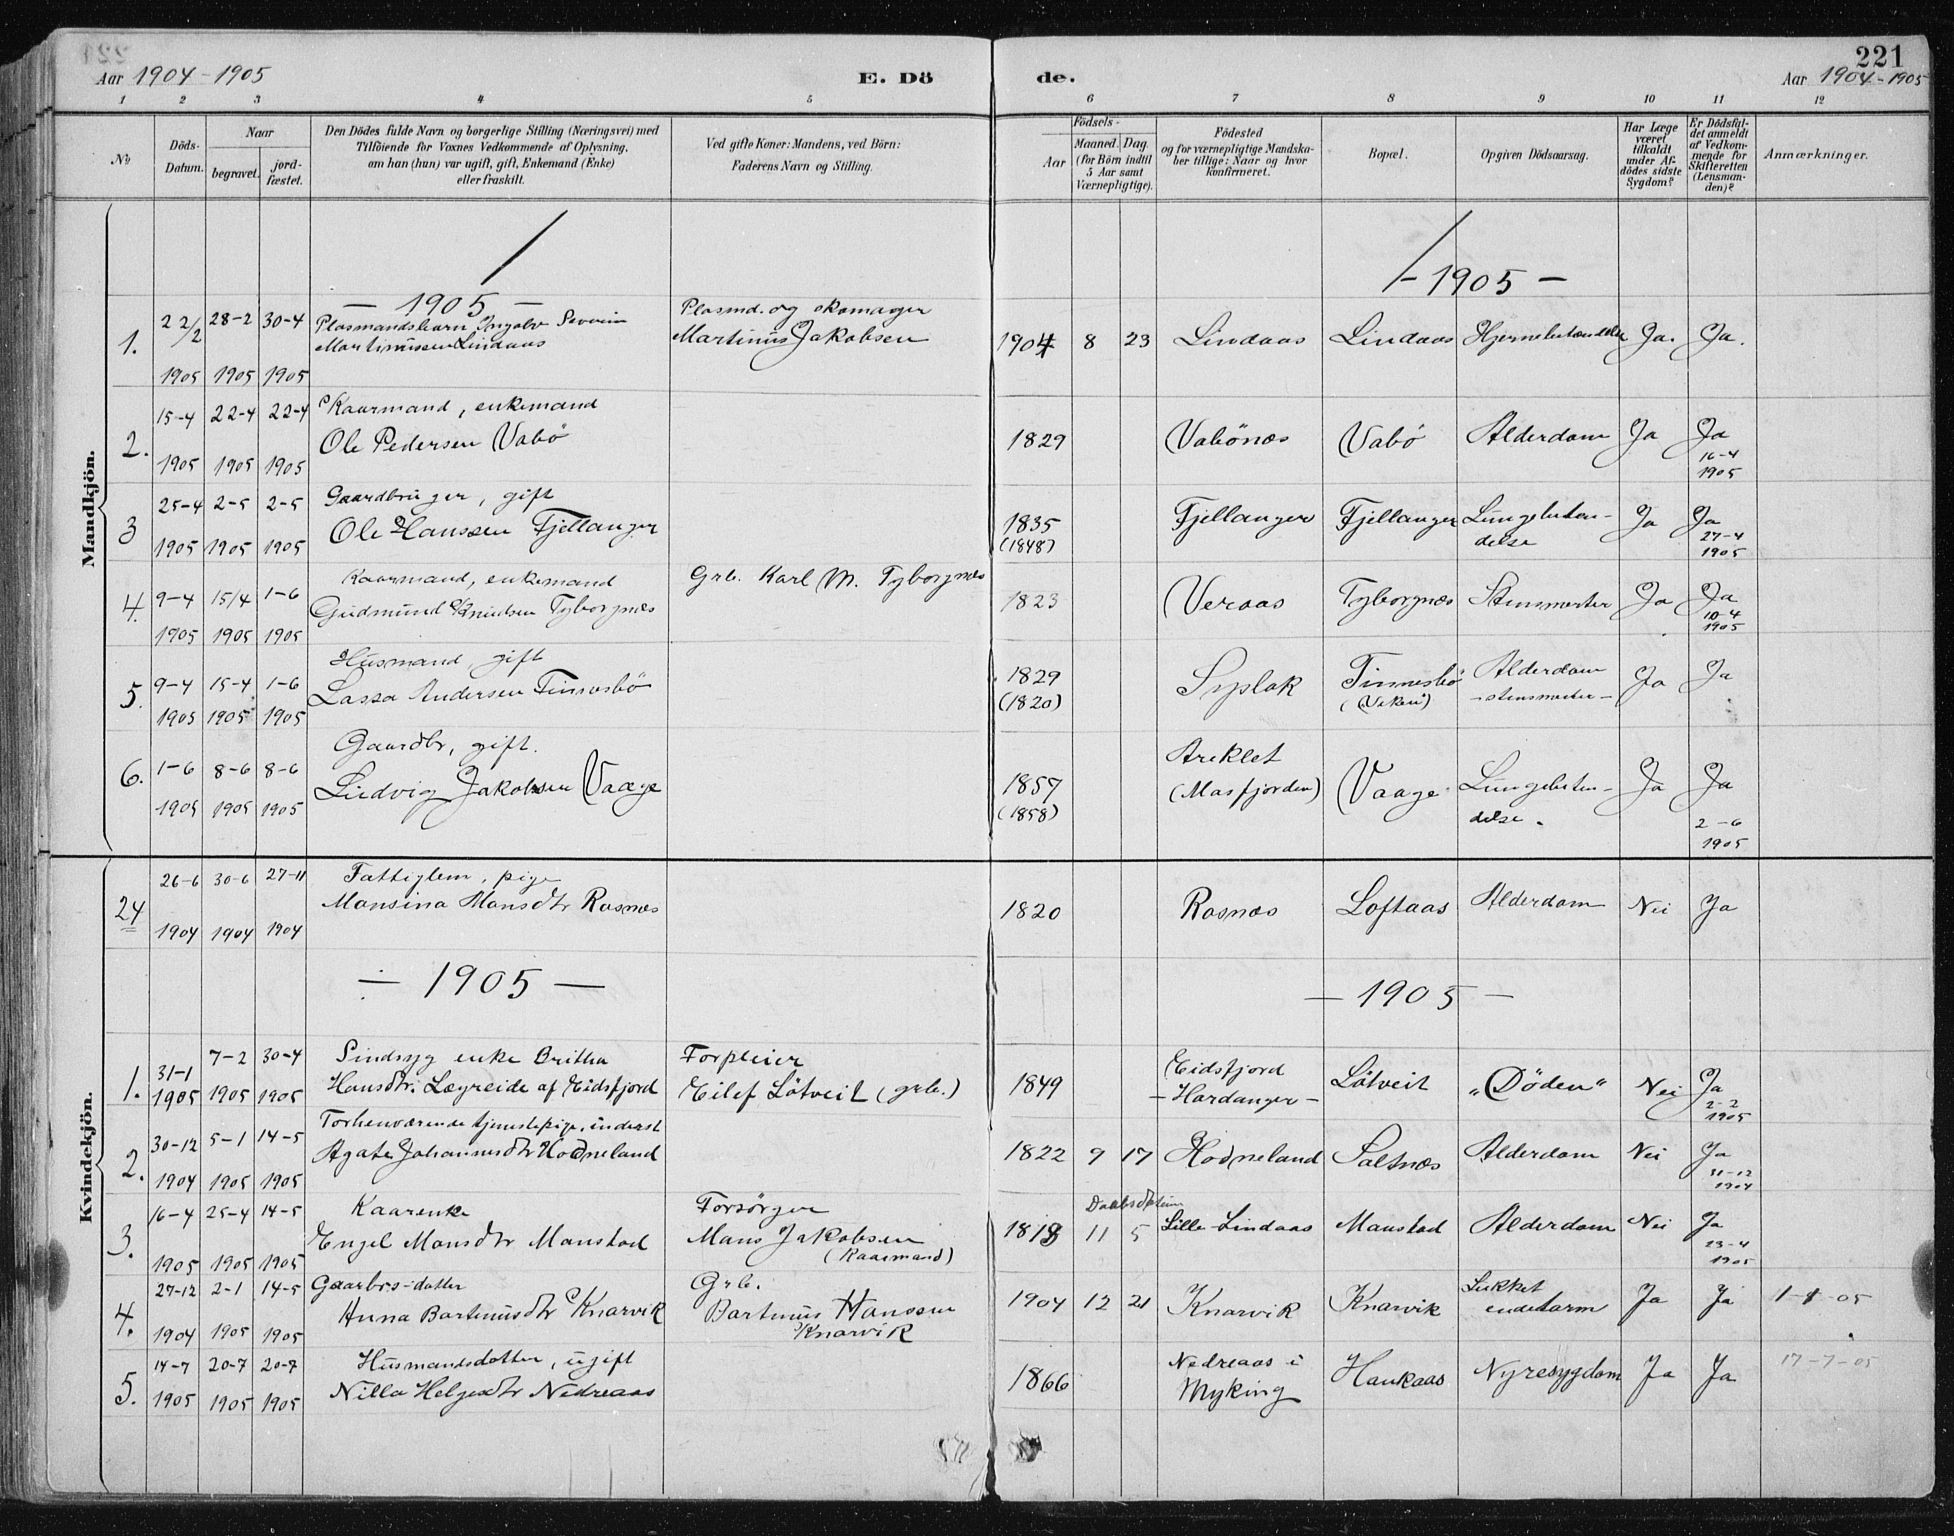 221
Aar 1904-1905 E. Dö de. Aar 1904-1905
1 2 3 4 5 6 7 8 9 10 11 12
No
Döds-Datum.
Naar
begravet.
jord-fæstet.
Den Dödes fulde Navn og borgerlige Stilling (Næringsvei) med
Tilföiende for Voxnes Vedkommende af Oplysning,
om han (hun) var ugift, gift, Enkemand (Enke)
eller fraskilt.
Ved gifte Koner: Mandens, ved Börn:
Faderens Navn og Stilling.
Födsels-
Aar
Maaned. Dag.
(for Börn indtil
5 Aar samt
Værnepligtige).
Födested
og for værnepligtige Mandska-
ber tillige: Naar og hvor
konfirmeret.
Bopæl.
Opgiven Dödsaarsag.
Har Læge
været
tilkaldt
under Af-
dödes sidste
Sygdom?
Er Dödsfal-
det anmeldt
af Vedkom-
mende for
Skifteretten
(Lensman-
den)?
Anmærkninger.
Mandkjön.
— 1905 — — 1905 —
22/2 28-2 30-4 Plasmandsbarn Ingolv Severin Plasmd. og skomager
1. Martinussen Lindaas Martinus Jakobsen 1904 8 23 Lindaas Lindaas Hjernebetændelse Ja. Ja.
1905 1905 1905
15-4 22-4 22-4 Kaarmand, enkemand
2. Ole Pedersen Vabö 1829 Vabönæs Vabö Alderdom Ja Ja
1905 1905 1905 16-4
1905
25-4 2-5 2-5 Gaardbruger, gift
3 Ole Hanssen Fjellanger 1835 Fjellanger Fjellanger Lungebeten- Ja Ja
1905 1905 1905 (1848) delse 27-4
1905
Kaarmand, enkemand Grb. Karl M. Tyborgnæs
4. 9-4 15/4 1-6 Gudmund Knudsen Tyborgnæs 1823 Veraas Tyborgnæs Stensmerter Ja Ja
1905 1905 1905 10-4
1905
Husmand, gift
5. 9-4 15-4 1-6 Lassa Andersen Finnesbö 1829 Syslak Finnesbö Alderdom Ja Ja
1905 1905 1905 (1820) - stensmerter -
Gaardbr, gift.
6. 1-6 8-6 8-6 Ludvig Jakobsen Vaage 1857 (Masfjorden) Vaage Lungebeten- Ja Ja
1905 1905 1905 (1858) delse. 2-6
1905
Kvindekjön.
26-6 30-6 27-11 Fattiglem, pige
24 Monsina Monsdtr Rosnæs 1820 Rosnæs Loftaas Alderdom Nei Ja
1904 1904 1904
— 1905 — — 1905 —
31-1 7-2 30-4 Sindsyg enke Britha Forpleier Eidsfjord
1. Hansdtr. Lægreide af Eidsfjord Eilef Lötveit (grb.) 1849 - Hardanger - Lötveit „Döden“ Nei Ja
1905 1905 1905 2-2
1905
Forhenværende tjenestepige, inderst
2. 30-12 5-1 14-5 Agate Johannesdtr Hodneland 1822 9 17 Hodneland Saltnæs Alderdom Nei Ja
1904 1905 1905 31-12
1904
16-4 25-4 14-5 Kaarenke Forsörger
3. Engel Monsdtr Monstad Mons Jakobsen 1818 11 5 Lille-Lindaas Monstad Alderdom Nei Ja
1905 1905 1905 (Kaarmand) 23-4
1905
27-12 2-1 14-5 Gaarbrs-datter Grb. Lukket
4. Anna Bartinusdtr Knarvik Bartinus Hanssen 1904 12 21 Knarvik Knarvik endetarm Ja Ja 1-1-05
1904 1905 1905 Knarvik
14-7 20-7 20-7 Husmandsdotter, ugift Nedreaas i 17-7-05
5. Nilla Helgesdtr Nedreaas 1866 Myking Haukaas Nyresygdom Ja Ja
1905 1905 1905